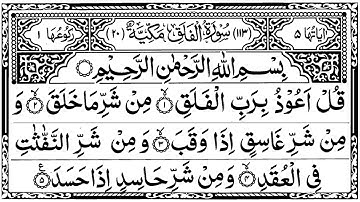 اٰيَاتُهَا ٥ (١١٣) سُوْرَةُ الْفَلَقِ مَكِّيَّةٌ (٢٠) رُكُوْعُهَا ١
بِسْمِ اللّٰهِ الرَّحْمٰنِ الرَّحِيْمِ
قُلْ اَعُوْذُ بِرَبِّ الْفَلَقِ ۝١ مِنْ شَرِّ مَا خَلَقَ ۝٢ وَ
مِنْ شَرِّ غَاسِقٍ اِذَا وَقَبَ ۝٣ وَ مِنْ شَرِّ النَّفّٰثٰتِ
فِی الْعُقَدِ ۝٤ وَ مِنْ شَرِّ حَاسِدٍ اِذَا حَسَدَ ۝٥